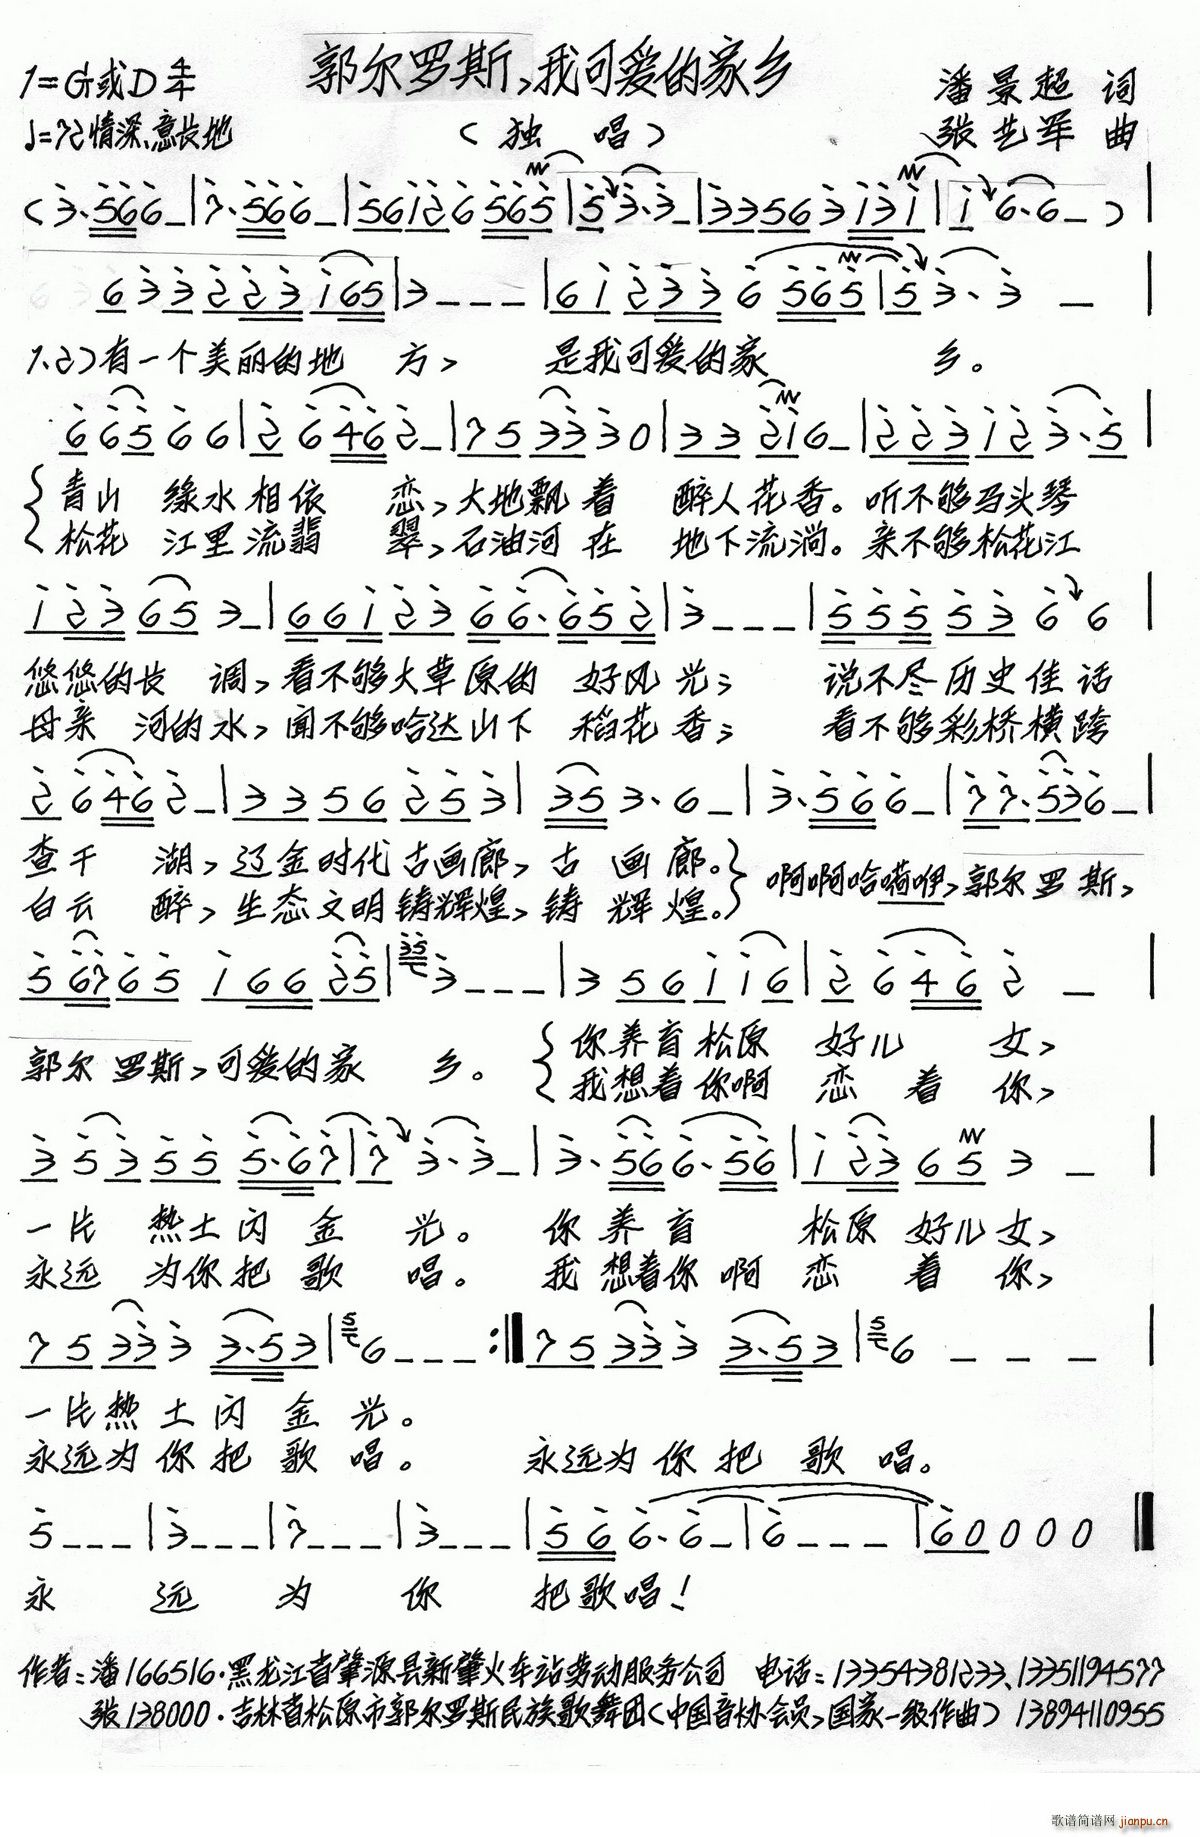 郭尔罗斯,我可爱的家乡
1=G或D 4/4
潘景超 词
♩=72 情深、意长地
(独 唱)
张艺军 曲
(3·566_|7·566_|56126565|53·3_|33563131|16·6_)|
633223165|3___|612336565|53·3_|
1.2)有一个美丽的地 方, 是我可爱的家 乡。
66566|26462_|753330|33216_|223123·5|
青山 绿水相依 恋,大地飘着 醉人花香。听不够马头琴
松花 江里流翡 翠,石油河在 地下流淌。亲不够松花江
123653_|6612366·652|3___|5555366|
悠悠的长 调,看不够大草原的 好风光; 说不尽历史佳话
母亲 河的水,闻不够哈达山下 稻花香; 看不够彩桥横跨
26462_|3356253|353·6_|3·566_|77·536_|
查干 湖,辽金时代古画廊,古 画廊。 啊啊哈嗬咿,郭尔罗斯,
白云 醉,生态文明铸辉煌,铸 辉煌。
5676516625|353___|356116|26462_|
郭尔罗斯,可爱的家 乡。 你养育松原 好儿 女,
我想着你啊 恋 着 你,
353555·67|73·3_|3·566·56|123653_|
一片 热土闪 金 光。 你养育 松原好儿女,
永远 为你把 歌 唱。 我想着你啊 恋 着 你,
753333·53|56___:‖753333·53|56___|
一片热土闪 金 光。
永远为你把 歌 唱。 永远为你把 歌 唱。
5___|3___|7___|3___|566·6_|6___|60000‖
永 远 为 你 把歌唱!
作者:潘166516·黑龙江省肇源县新肇火车站劳动服务公司 电话:13354381233、13351194577
张138000·吉林省松原市郭尔罗斯民族歌舞团(中国音协会员,国家一级作曲) 13894110955
歌谱简谱网 jianpu.cn